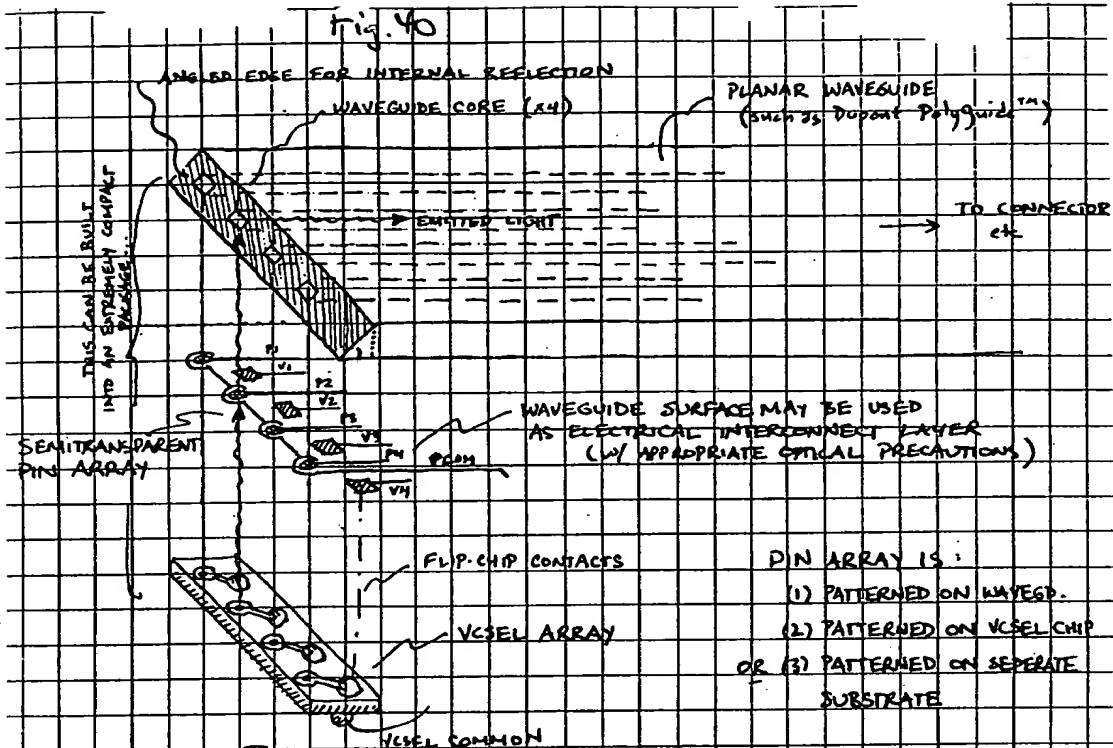 Fig. 40
ANGLED EDGE FOR INTERNAL REFLECTION
WAVEGUIDE CORE (x4)
PLANAR WAVEGUIDE
(such as Dupont Polyguide™)
THIS CAN BE BUILT
INTO AN EXTREMELY COMPACT
PACKAGE...
EMITTED LIGHT
TO CONNECTOR
etc
P1
V1
P2
V2
P3
V3
P4
PCOM
V4
SEMITRANSPARENT
PIN ARRAY
WAVEGUIDE SURFACE MAY BE USED
AS ELECTRICAL INTERCONNECT LAYER
(W/ APPROPRIATE OPTICAL PRECAUTIONS)
FLIP-CHIP CONTACTS
VCSEL ARRAY
VCSEL COMMON
PIN ARRAY IS:
(1) PATTERNED ON WAVEGD.
(2) PATTERNED ON VCSEL CHIP
OR (3) PATTERNED ON SEPERATE
SUBSTRATE